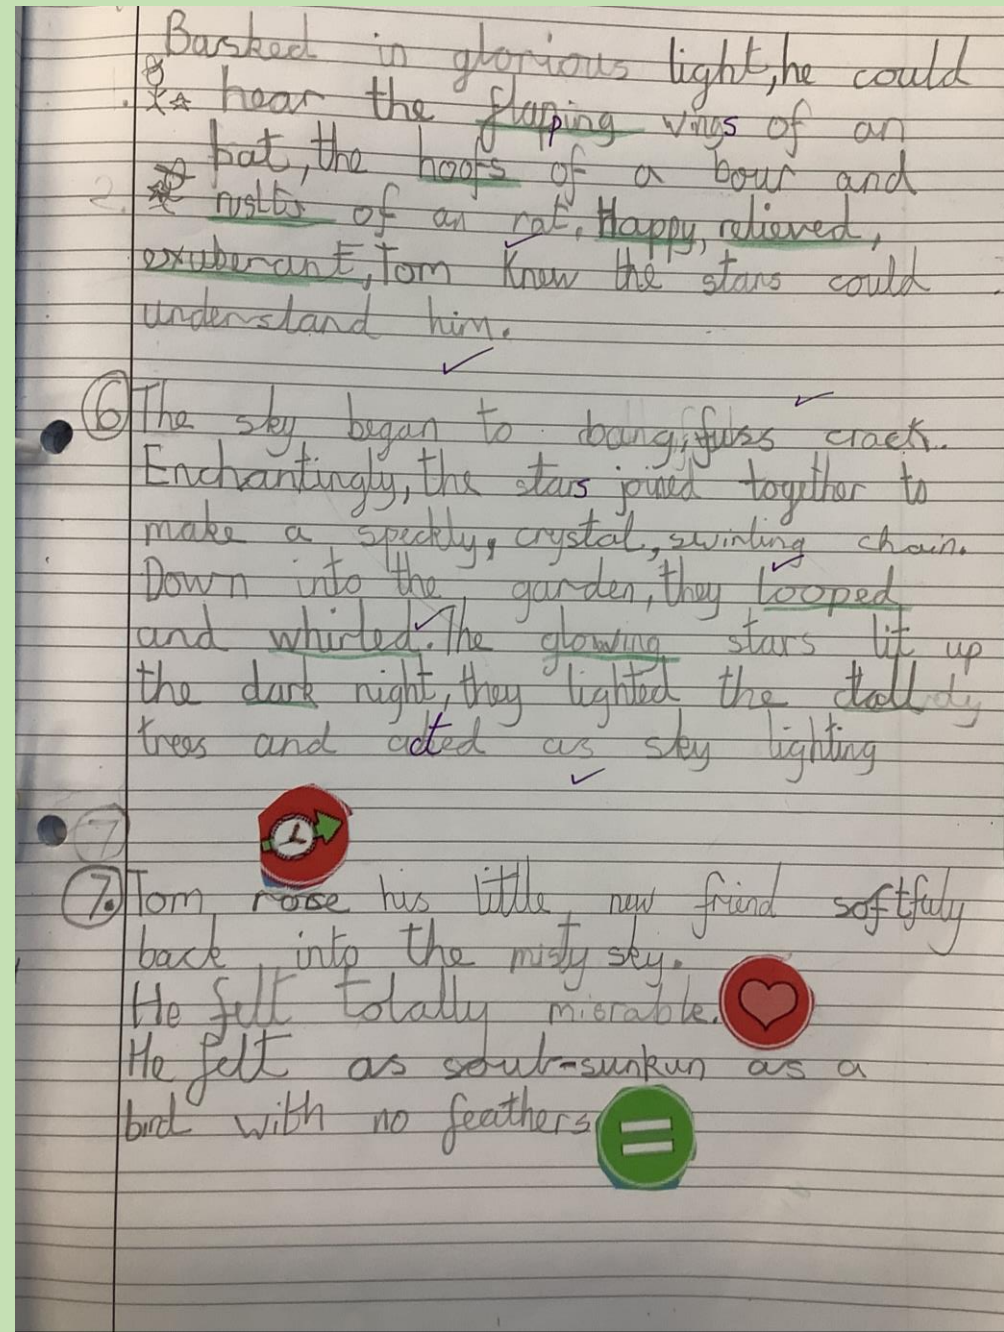 Basked in glorious light, he could
hear the flapping wings of an
bat, the hoofs of a bour and
of an rat. Happy, relieved,
exuberant, Tom knew the stars could
understand him.
6 The sky began to bang, fuss crack..
Enchantingly, the stars joined together to
make a speckly, crystal, swirling chain.
Down into the garden, they looped
and whirled. The glowing stars lit up
the dark night, they lighted the
trees and acted as sky lighting
7
7. Tom rose his little new friend softfuly
back into the misty sky.
He felt totally misrable.
He felt as soul-sunkun as a
bird with no feathers